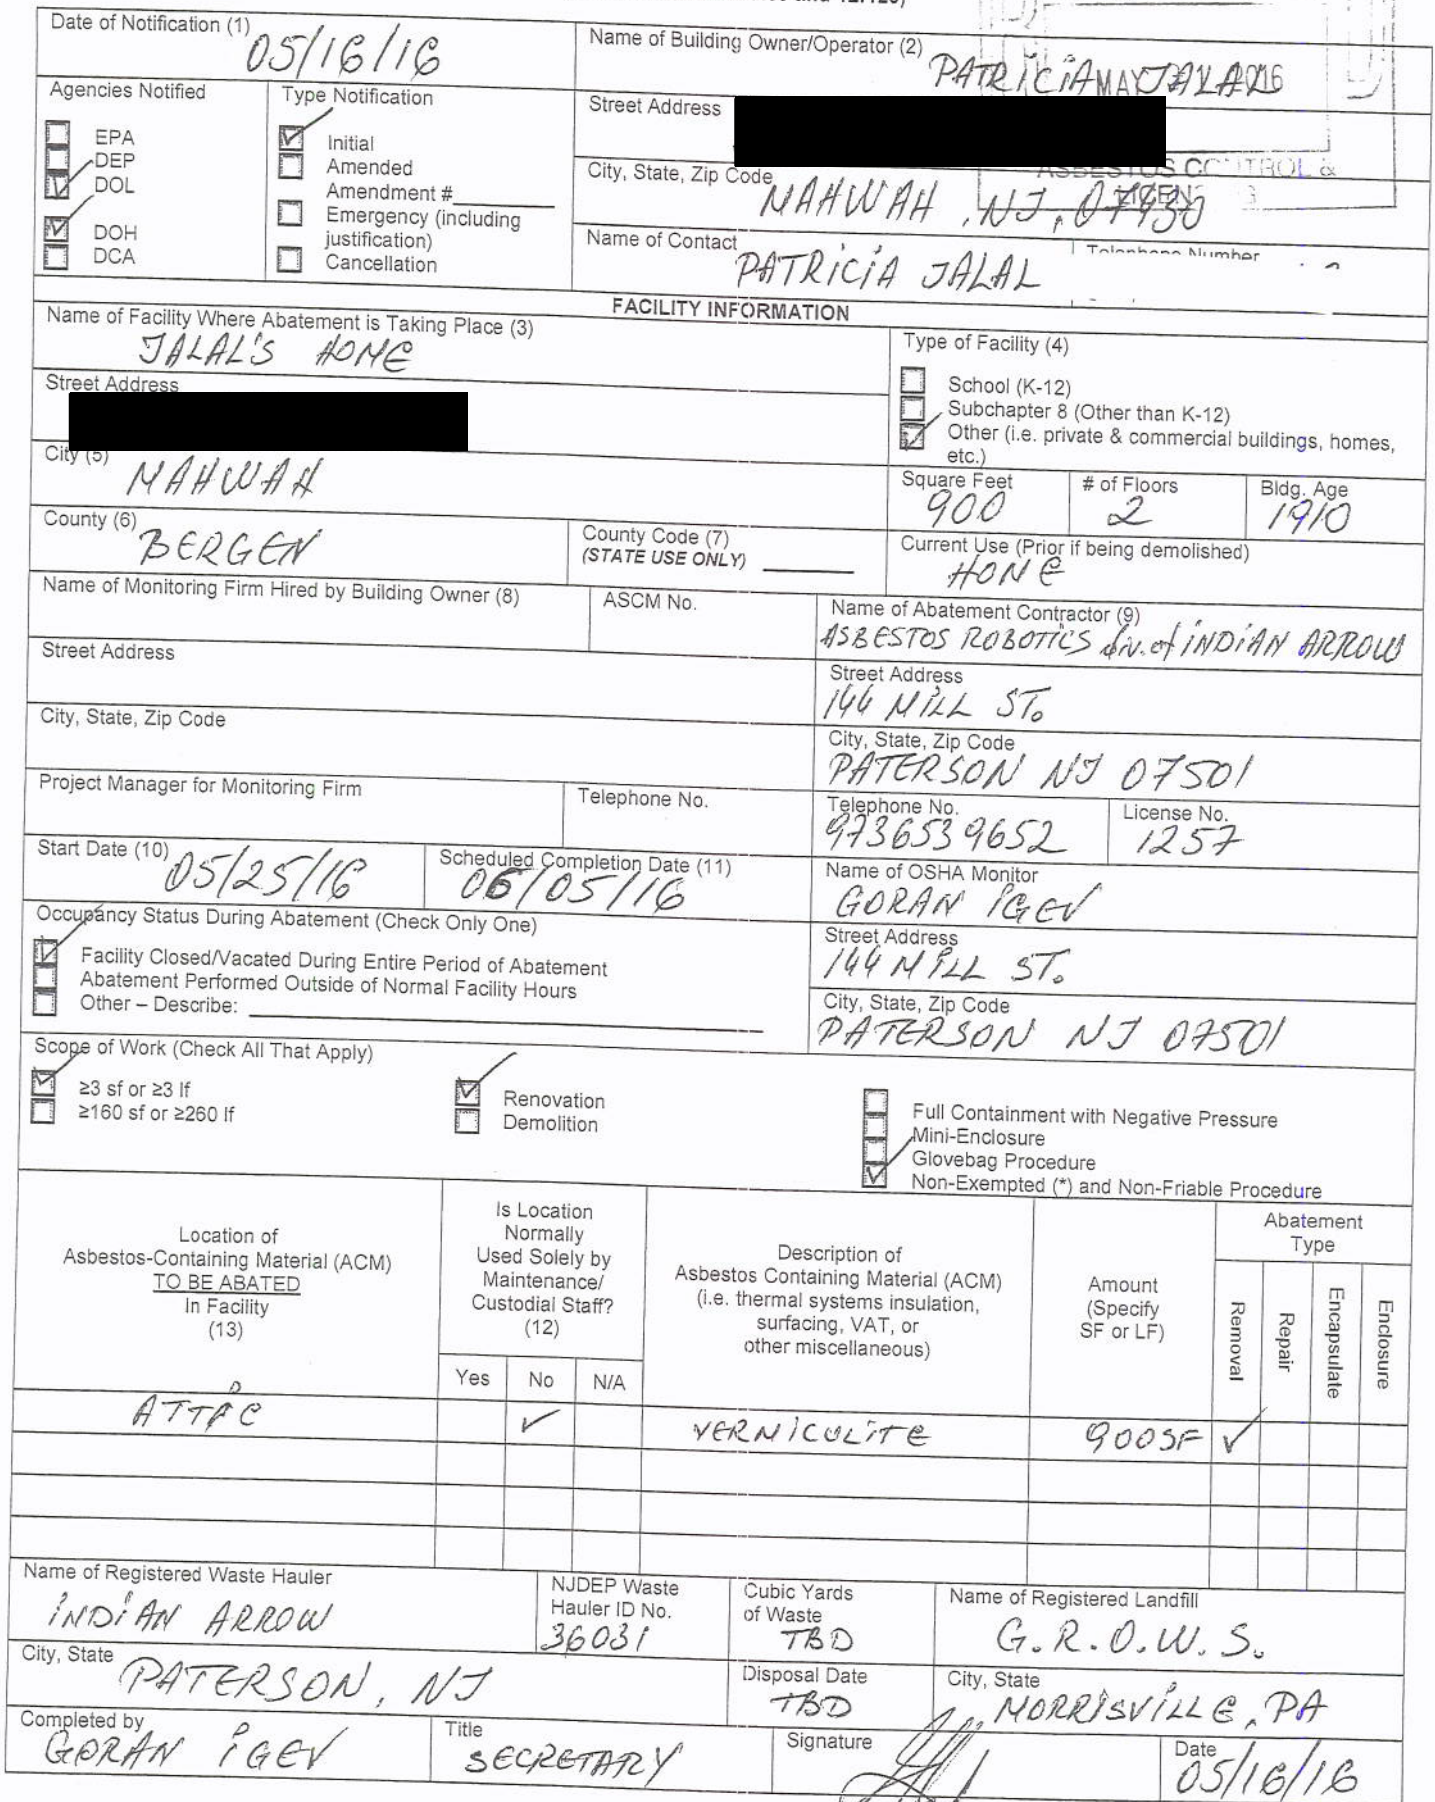 Date of Notification (1)
05/16/16
Name of Building Owner/Operator (2)
PATRICIA JALAL
MAY 2016
Agencies Notified
EPA
DEP
DOL
DOH
DCA
Type Notification
Initial
Amended
Amendment #
Emergency (including
justification)
Cancellation
Street Address
City, State, Zip Code
MAHWAH, NJ, 07430
ASBESTOS CONTROL &
Name of Contact
PATRICIA JALAL
Telephone Number
FACILITY INFORMATION
Name of Facility Where Abatement is Taking Place (3)
JALAL'S HOME
Street Address
City (5)
MAHWAH
County (6)
BERGEN
County Code (7)
(STATE USE ONLY)
Type of Facility (4)
School (K-12)
Subchapter 8 (Other than K-12)
Other (i.e. private & commercial buildings, homes,
etc.)
Square Feet
900
# of Floors
2
Bldg. Age
1910
Current Use (Prior if being demolished)
HOME
Name of Monitoring Firm Hired by Building Owner (8)
ASCM No.
Street Address
City, State, Zip Code
Project Manager for Monitoring Firm
Telephone No.
Name of Abatement Contractor (9)
ASBESTOS ROBOTICS div. of INDIAN ARROW
Street Address
144 MILL ST.
City, State, Zip Code
PATERSON NJ 07501
Telephone No.
9736539652
License No.
1257
Start Date (10)
05/25/16
Scheduled Completion Date (11)
06/05/16
Name of OSHA Monitor
GORAN IGEV
Street Address
144 MILL ST.
City, State, Zip Code
PATERSON NJ 07501
Occupancy Status During Abatement (Check Only One)
Facility Closed/Vacated During Entire Period of Abatement
Abatement Performed Outside of Normal Facility Hours
Other – Describe:
Scope of Work (Check All That Apply)
≥3 sf or ≥3 lf
≥160 sf or ≥260 lf
Renovation
Demolition
Full Containment with Negative Pressure
Mini-Enclosure
Glovebag Procedure
Non-Exempted (*) and Non-Friable Procedure
Location of
Asbestos-Containing Material (ACM)
TO BE ABATED
In Facility
(13)
Is Location
Normally
Used Solely by
Maintenance/
Custodial Staff?
(12)
Yes
No
N/A
Description of
Asbestos Containing Material (ACM)
(i.e. thermal systems insulation,
surfacing, VAT, or
other miscellaneous)
Amount
(Specify
SF or LF)
Abatement
Type
Removal
Repair
Encapsulate
Enclosure
ATTIC
VERMICULITE
900SF
Name of Registered Waste Hauler
INDIAN ARROW
NJDEP Waste
Hauler ID No.
36031
Cubic Yards
of Waste
TBD
Name of Registered Landfill
G.R.O.W.S.
City, State
PATERSON, NJ
Disposal Date
TBD
City, State
MORRISVILLE, PA
Completed by
GORAN IGEV
Title
SECRETARY
Signature
Date
05/16/16